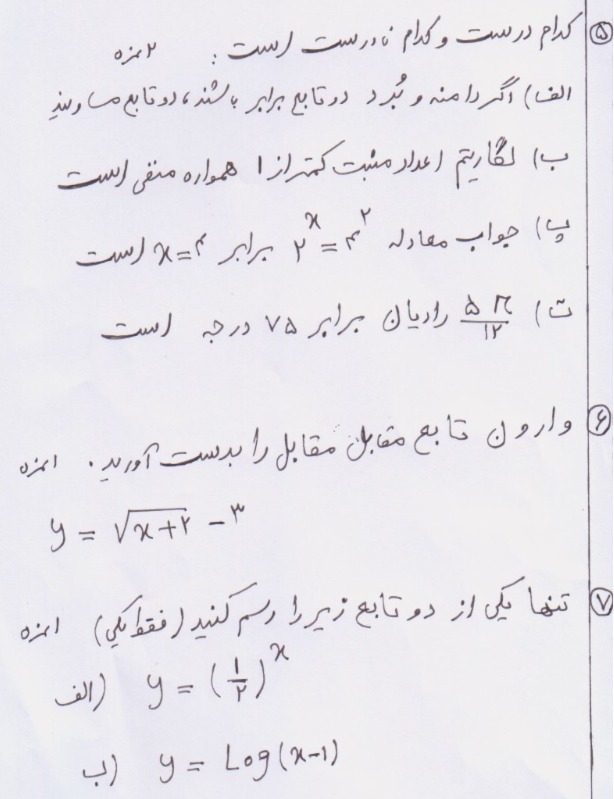 ۵ کدام درست و کدام نادرست است : ۲ نمره
الف) اگر دامنه و بُرد دو تابع برابر باشند، دو تابع مساویند
ب) لگاریتم اعداد مثبت کمتر از ۱ همواره منفی است
پ) جواب معادله ۲^x = ۴^۲ برابر x = ۴ است
ت) ۵π/۱۲ رادیان برابر ۷۵ درجه است
۶ وارون تابع مقابل مقابل را بدست آورید. ۱ نمره
y = √(x+۲) - ۳
۷ تنها یکی از دو تابع زیر را رسم کنید (فقط یکی) ۱ نمره
الف) y = (۱/۲)^x
ب) y = Log(x-۱)